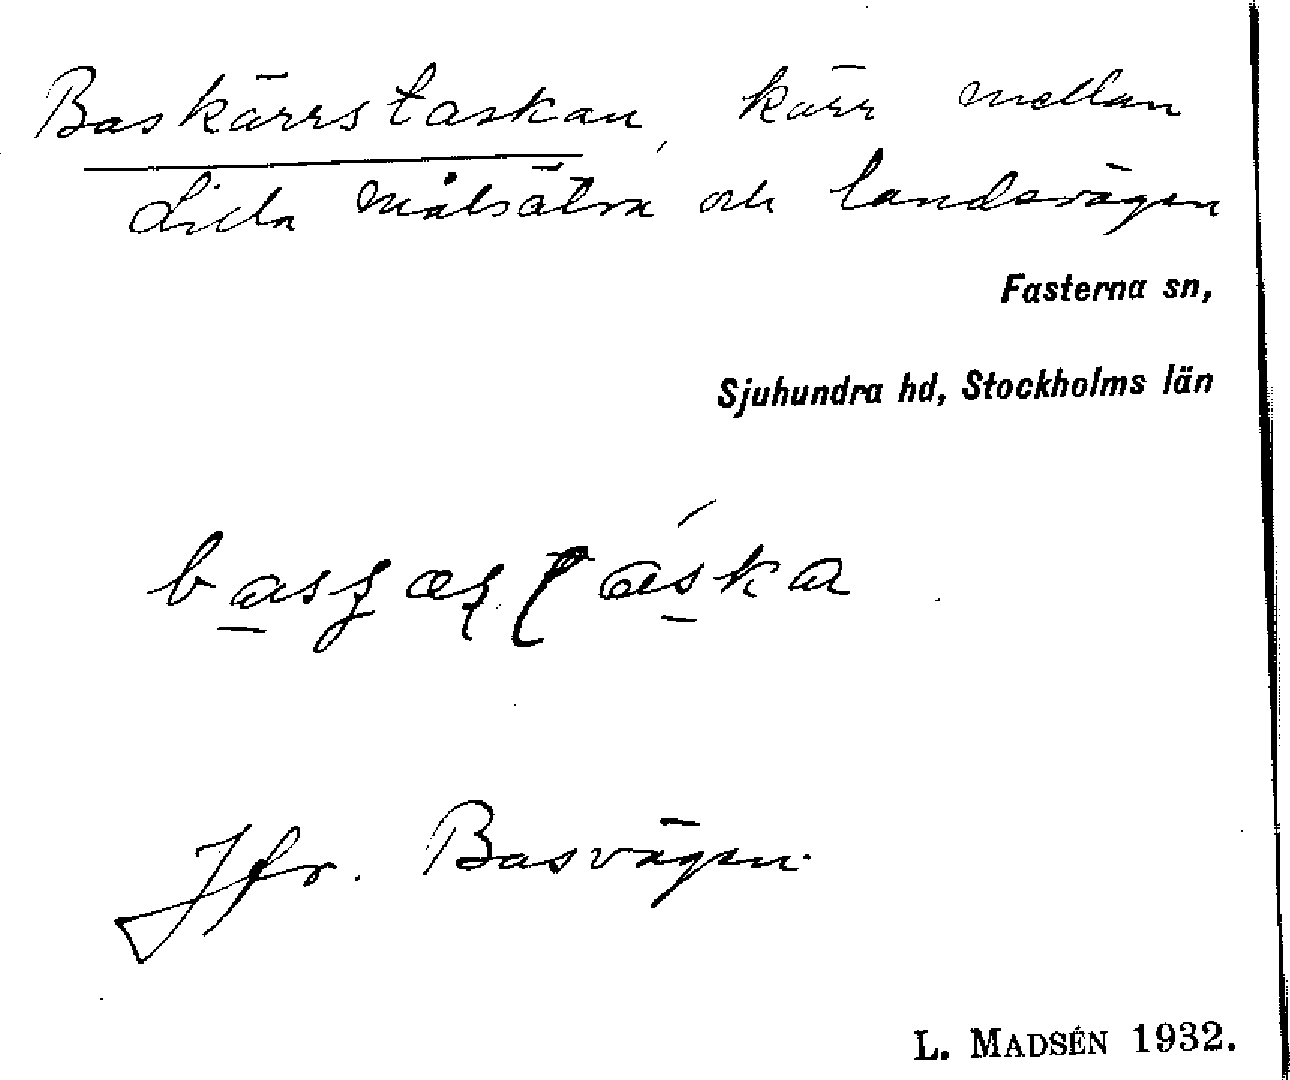 Baskärrstaskan, kärr mellan
Lilla Målsätra och landsvägen
Fasterna sn,
Sjuhundra hd, Stockholms län
Jfr. Basvägen.
L. MADSÉN 1932.